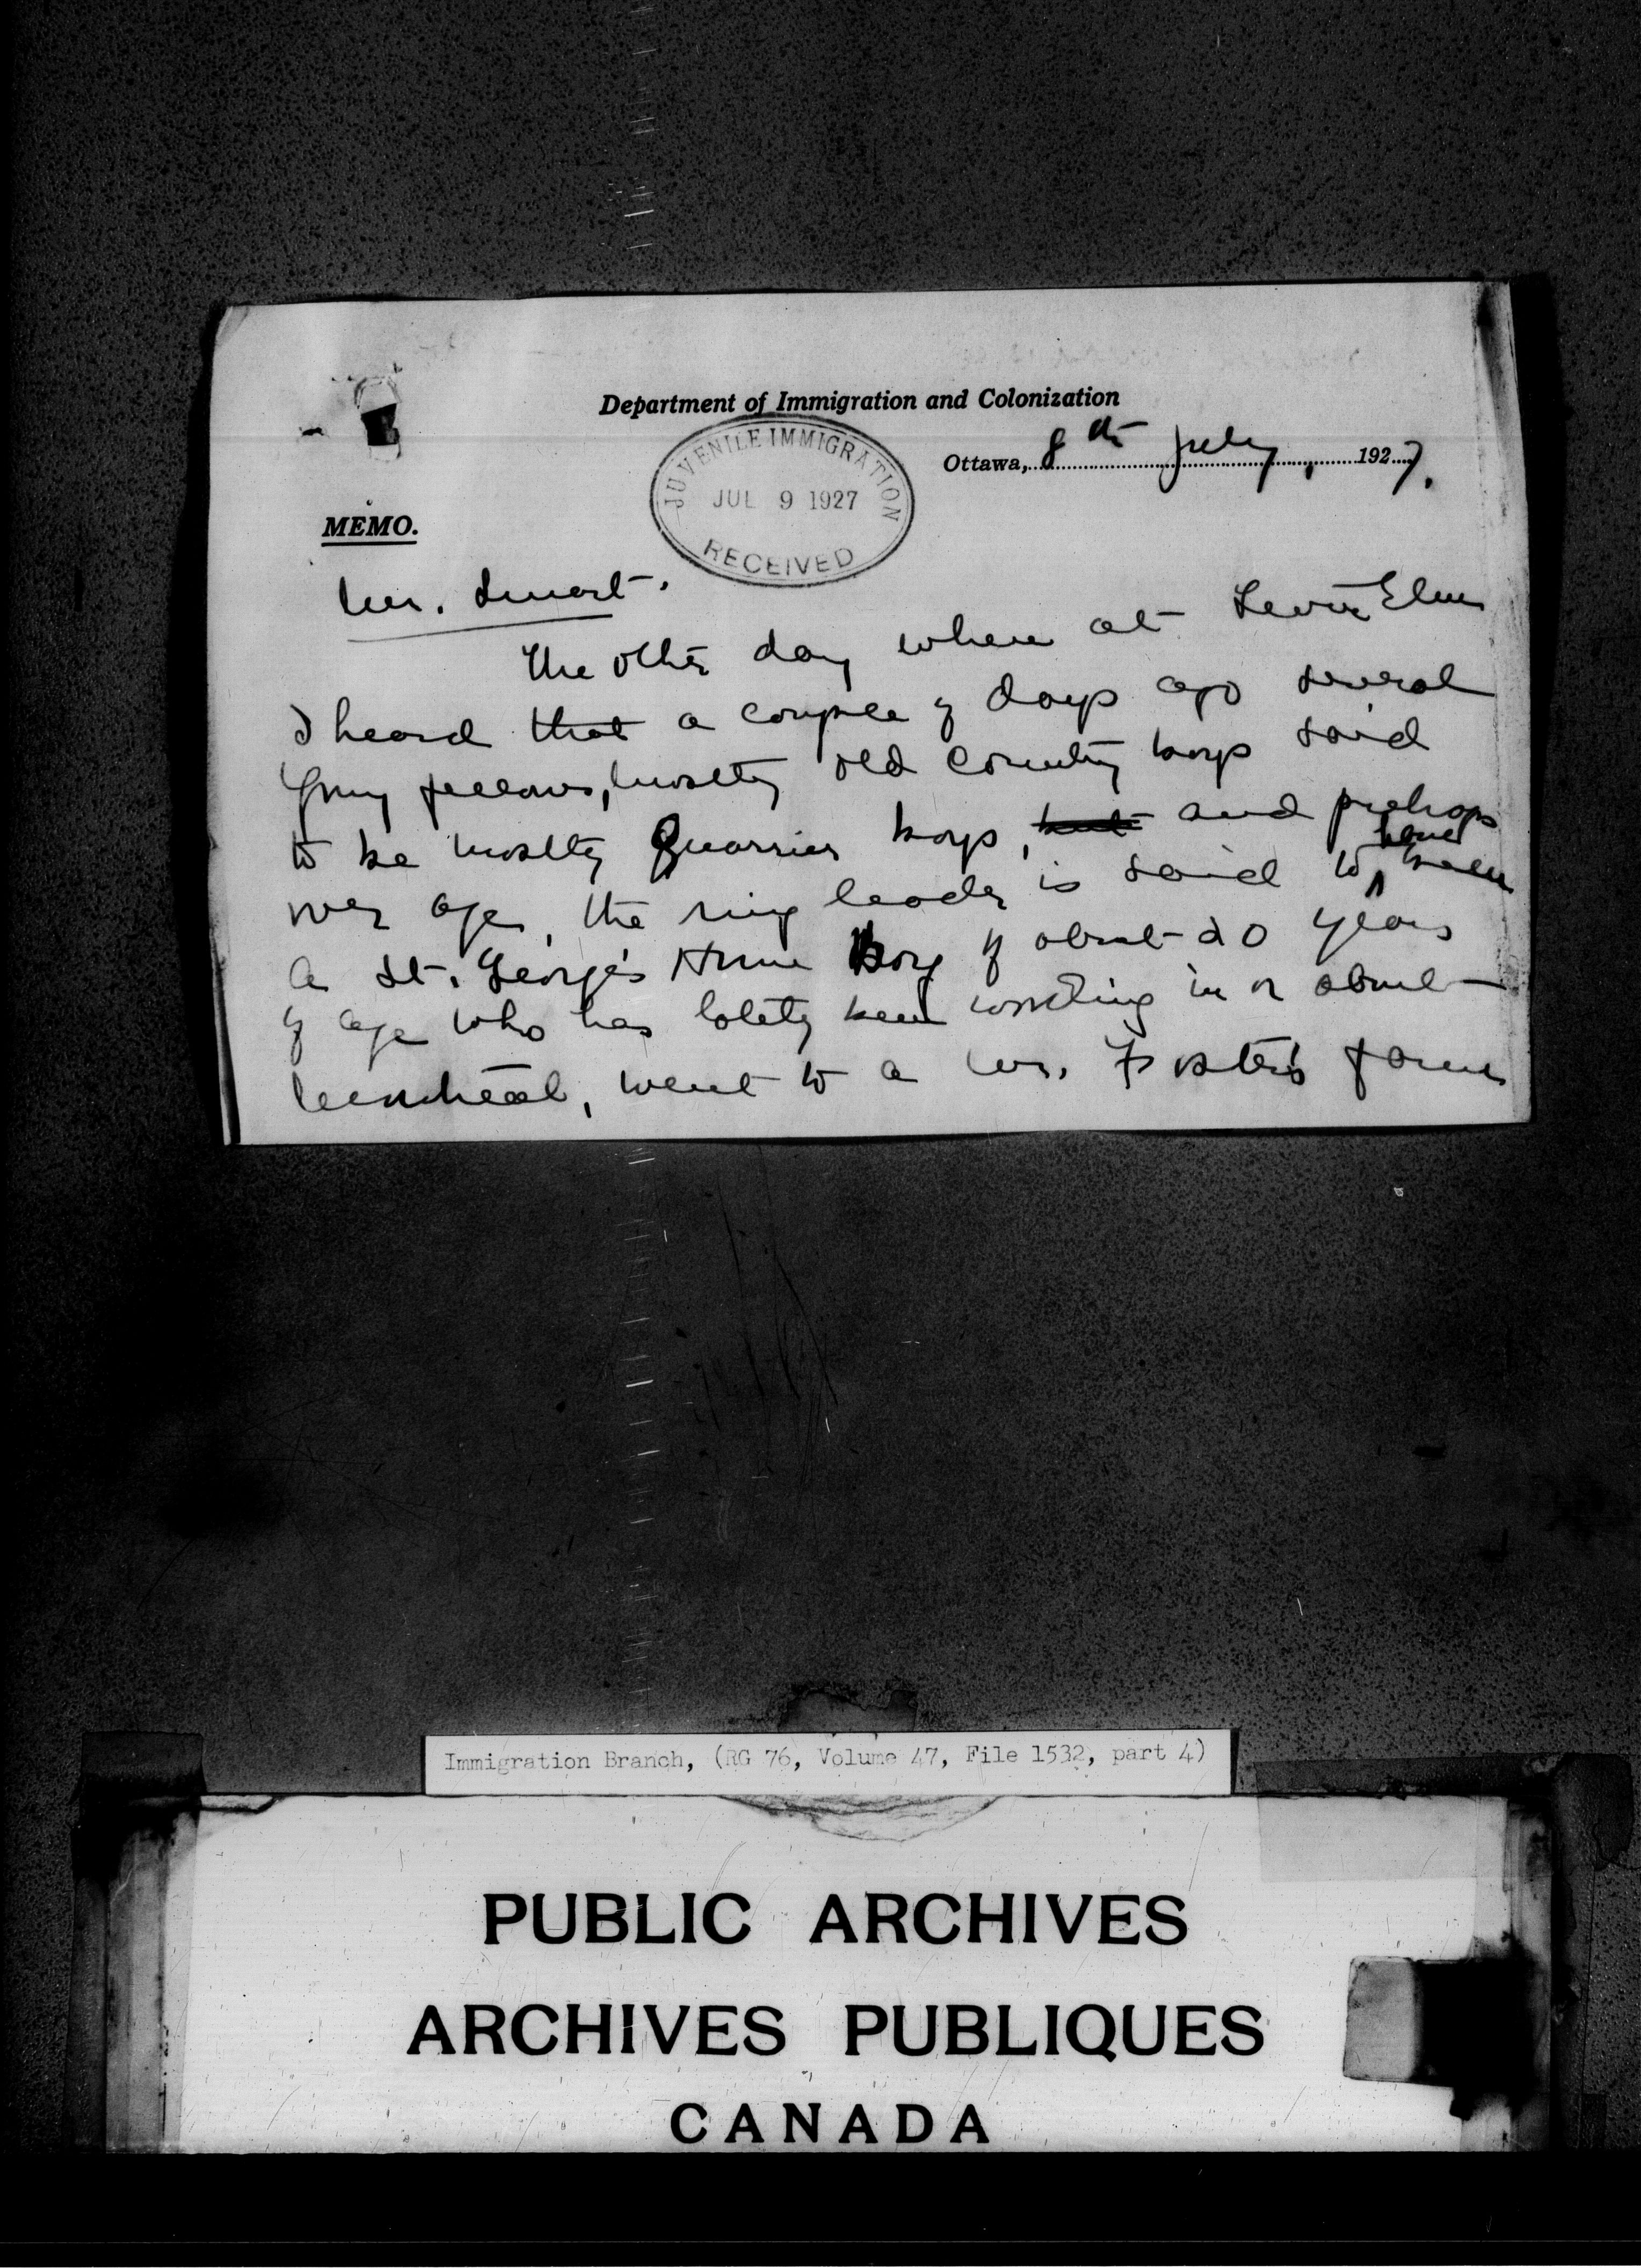 Department of Immigration and Colonization
JUVENILE IMMIGRATION
JUL 9 1927
RECEIVED
Ottawa, 8th July, 1927.
MEMO.
Mr. Smart.
The other day when at Elm
I heard that a couple of days ago several
young fellows, mostly old country boys said
to be mostly Quarrier boys, but and perhaps
over age, the ring leader is said to have been
a St. George's Home Boy of about 20 years
of age who has lately been working in or about
Montreal, went to a Mr. Foster's farm
Immigration Branch, (RG 76, Volume 47, File 1532, part 4)
PUBLIC ARCHIVES
ARCHIVES PUBLIQUES
CANADA